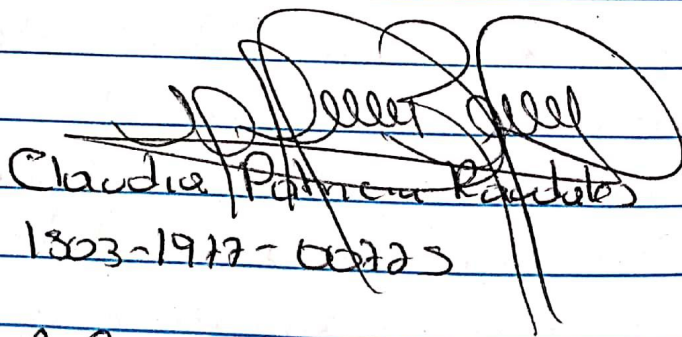 Claudia Patricia Raudales
1503-1977-00725